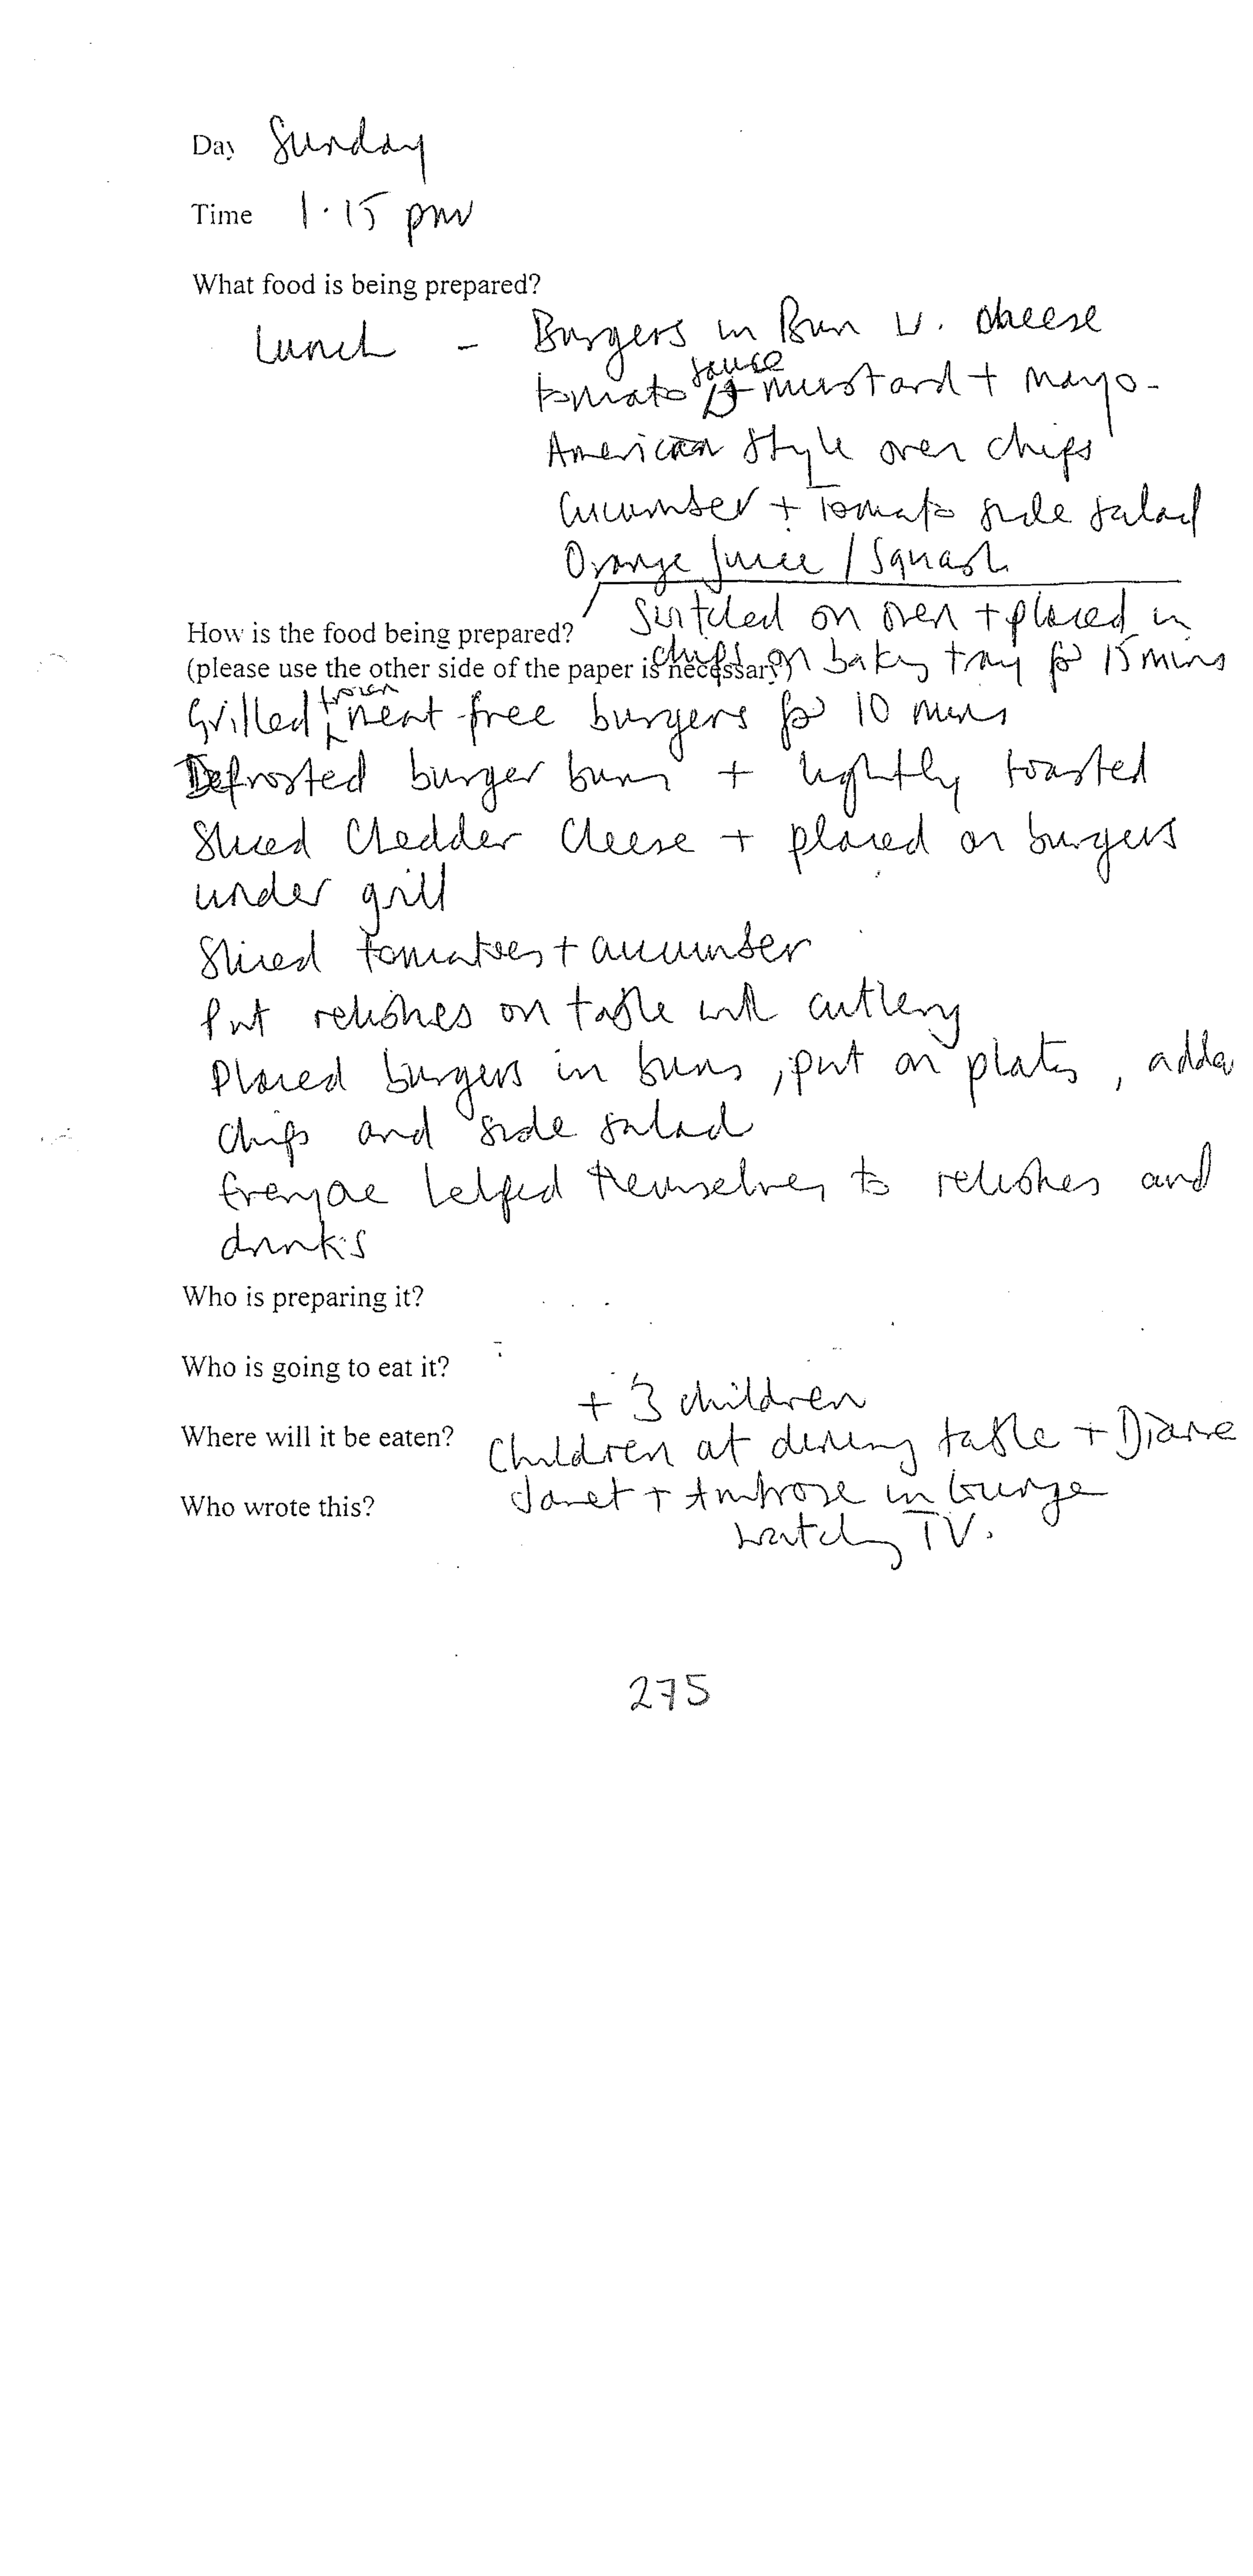 Day Sunday
Time 1.15 pm
What food is being prepared?
Lunch - Burgers in Bun w. cheese
tomato sauce + mustard + mayo -
American style oven chips
Cucumber + Tomato side salad
Orange Juice / Squash
Switched on oven + placed in
How is the food being prepared?
chips on baking tray for 15 mins
(please use the other side of the paper is necessary)
Grilled frozen meat free burgers for 10 mins
Defrosted burger buns + lightly toasted
Sliced Cheddar Cheese + placed on burgers
under grill
Sliced tomatoes + cucumber
Put relishes on table with cutlery
Placed burgers in buns, put on plates, added
chips and side salad
Everyone helped themselves to relishes and
drinks
Who is preparing it?
Who is going to eat it?
+ 3 children
Where will it be eaten? Children at dining table + Diane
Janet + Ambrose in lounge
Who wrote this?
watching TV.
275